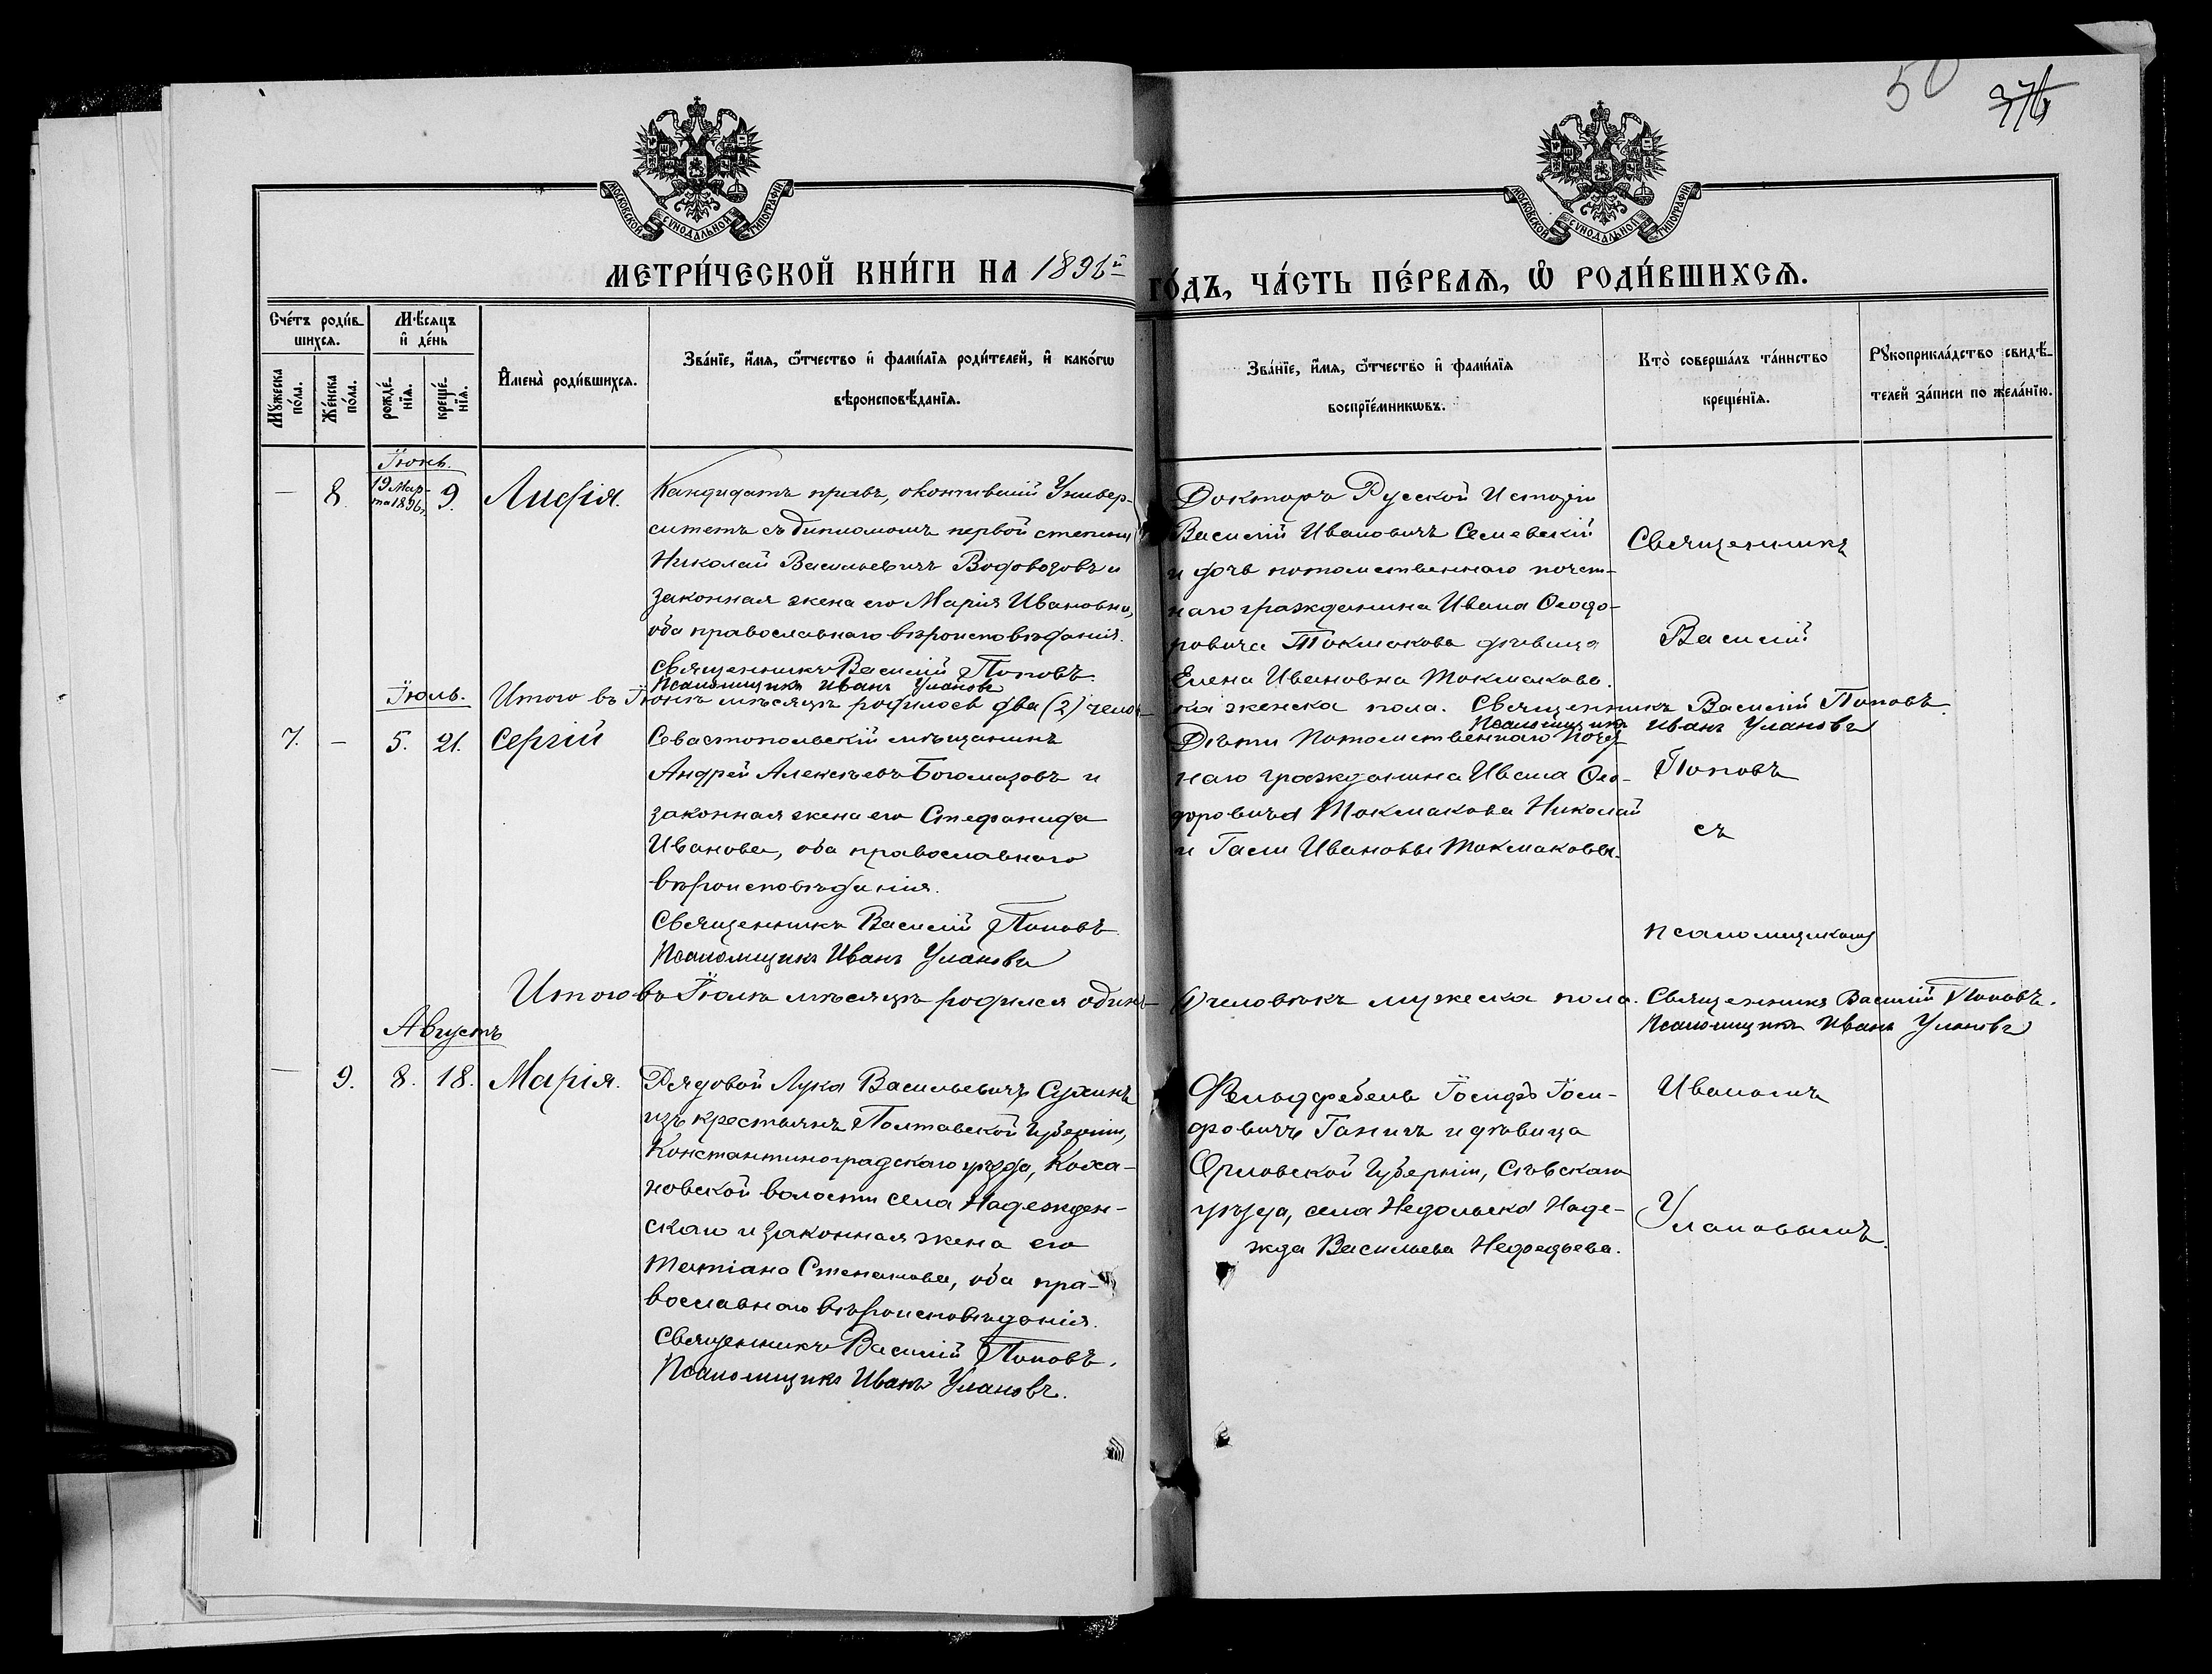 50
376
МОСКОВСКОЙ СѴНОДАЛЬНОЙ ТИПОГРАФІИ
МОСКОВСКОЙ СѴНОДАЛЬНОЙ ТИПОГРАФІИ
МЕТРИ́ЧЕСКОЙ КНИ́ГИ НА 1896й ГО́ДЪ, ЧА́СТЬ ПЕ́РВАѦ, Ѡ РОДИ́ВШИХСѦ.
Сче́тъ роди́в-
шихсѧ.
Мѣ́сѧцъ
и де́нь
Мꙋ́жеска
по́ла.
Же́нска
по́ла.
рожде́-
нїѧ.
креще́-
нїѧ.
И҆мена̀ роди́вшихсѧ.
Зва́нїе, и҆́мѧ, ѻ҆́тчество и҆ фами́лїѧ роди́телей, и҆ како́гѡ
вѣроисповѣ́данїѧ.
Зва́нїе, и҆́мѧ, ѻ҆́тчество и҆ фами́лїѧ
воспрїе́мникѡвъ.
Кто̀ соверша́лъ та́инство
креще́нїѧ.
Рꙋкоприкла́дство свидѣ́-
телей за́писи по жела́нїю.
Іюнь.
— 8. 19 Мар-
та 1896г. 9. Лидія.
Кандидатъ правъ, окончившій Универ-
ситетъ съ дипломомъ первой степени
Николай Васильевичъ Водовозовъ и
законная жена его Марія Ивановна,
оба православнаго вѣроисповѣданія.
Священникъ Василій Поповъ.
Псаломщикъ Иванъ Улановъ
Докторъ Русской Исторіи
Василій Ивановичъ Семевскій
и дочь потомственнаго почет-
наго гражданина Ивана Ѳеодо-
ровича Токмакова дѣвица
Елена Ивановна Токмакова.
Священникъ
Василій
Іюль. Итого въ Іюнѣ мѣсяцѣ родилось два (2) челов-
ка женска пола. Священникъ Василій Поповъ.
Псаломщикъ Иванъ Улановъ
7. — 5. 21. Сергій
Севастопольскій мѣщанинъ
Андрей Алексѣевъ Богомазовъ и
законная жена его Стефанида
Иванова, оба православнаго
вѣроисповѣданія.
Священникъ Василій Поповъ.
Псаломщикъ Иванъ Улановъ
Дѣти Потомственнаго Почет-
наго гражданина Ивана Ѳео-
доровича Токмакова Николай
и Ивановы Токмаковы.
Поповъ
съ
псаломщикомъ
Итого въ Іюлѣ мѣсяцѣ родился одинъ
(1) человѣкъ мужеска пола. Священникъ Василій Поповъ.
Псаломщикъ Иванъ Улановъ
Августъ
— 9. 8. 18. Марія.
Рядовой Лука Васильевичъ Сухинъ
изъ крестьянъ Полтавской Губерніи,
Константиноградскаго уѣзда, Коха-
новской волости села Надежден-
скаго и законная жена его
Татіана Степанова, оба пра-
вославнаго вѣроисповѣданія.
Священникъ Василій Поповъ.
Псаломщикъ Иванъ Улановъ.
Фельдфебель Іосифъ Іоси-
фовичъ Ганичъ и дѣвица
Орловской Губерніи, Сѣвскаго
уѣзда, села Недольска Наде-
жда Васильева Нефедьева.
Иваномъ
Улановымъ.